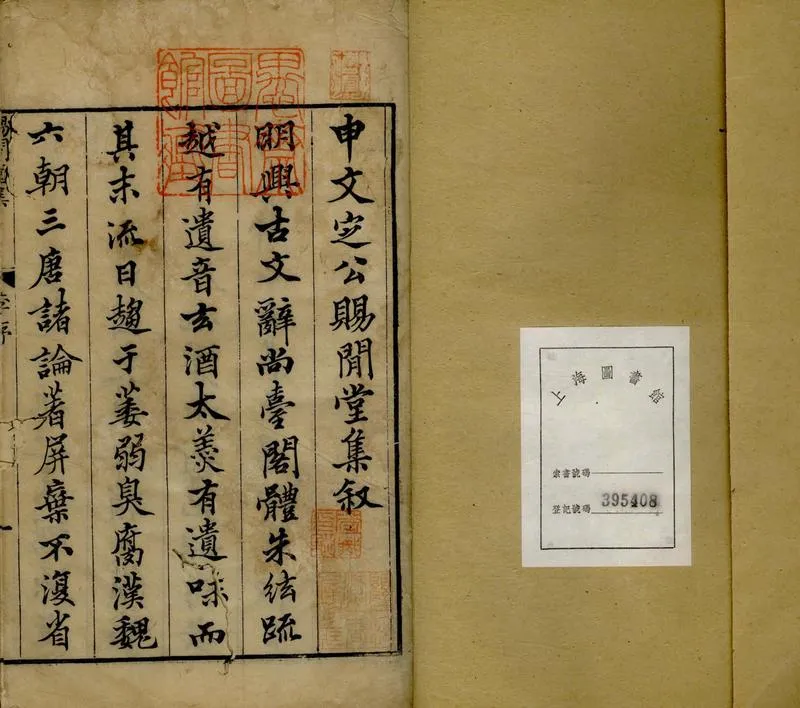 申文定公賜閒堂集叙
明興古文辭尚臺閣體朱絃疏
越有遺音玄酒太羹有遺味而
其末流日趨于萎弱臭腐漢魏
六朝三唐諸論著屏棄不復省
上海圖書館
索書號碼
登記號碼 395408